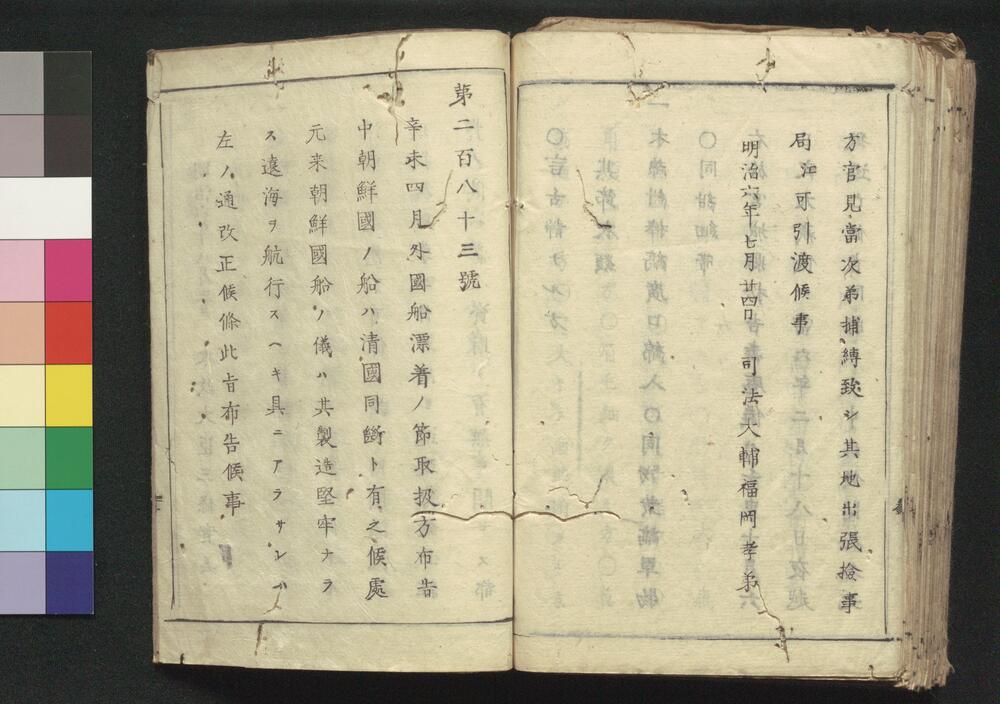 方官見當次弟捕縛致シ其地出張撿事
局江可引渡候事
明治六年七月廿四日 司法大輔福岡孝弟
第二百八十三號
辛未四月外國船漂着ノ節取扱方布告
中朝鮮國ノ船ハ清國同斷ト有之候處
元来朝鮮國船ノ儀ハ其製造堅牢ナラ
ス遠海ヲ航行スヘキ具ニアラサレハ
左ノ通改正候條此旨布告候事